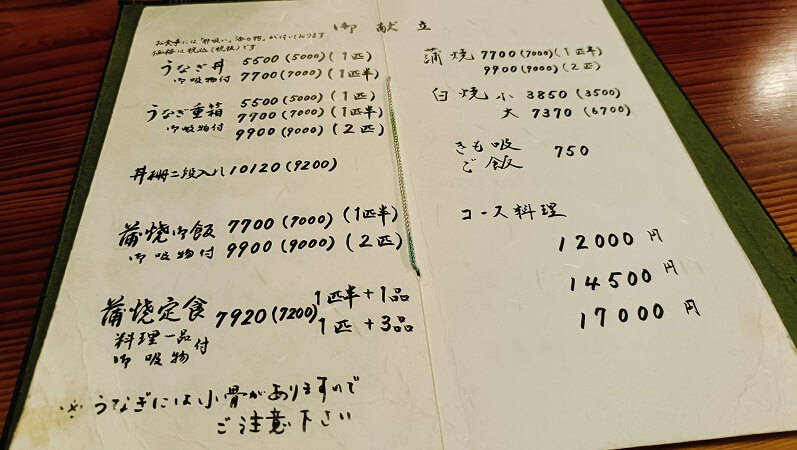 御献立
お食事には「肝吸い」「香の物」が付いております
価格は税込(税抜)です
うなぎ丼 5500(5000)(1匹)
御吸物付 7700(7000)(1匹半)
うなぎ重箱 5500(5000)(1匹)
御吸物付 7700(7000)(1匹半)
9900(9000)(2匹)
二段入り 10120(9200)
蒲焼御飯 7700(7000)(1匹半)
御吸物付 9900(9000)(2匹)
蒲焼定食 7920(7200) 1匹半+1品
1匹+3品
料理一品付
御吸物
※うなぎには小骨がありますので
ご注意下さい
蒲焼 7700(7000)(1匹半)
9900(9000)(2匹)
白焼 小 3850(3500)
大 7370(6700)
きも吸
ご飯 750
コース料理
12000円
14500円
17000円